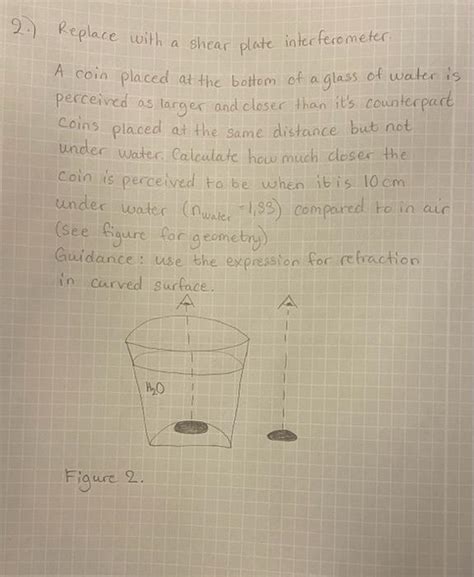 2.) Replace with a shear plate interferometer.
A coin placed at the bottom of a glass of water is
perceived as larger and closer than it's counterpart
coins placed at the same distance but not
under water. Calculate how much closer the
coin is perceived to be when it is 10 cm
under water (n_water = 1,33) compared to in air
(see figure for geometry)
Guidance: use the expression for refraction
in curved surface.
H₂O
Figure 2.